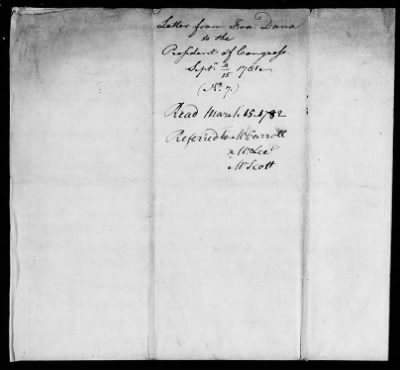 Letter from Fra Dana
to the
President of Congress
Septr. 4/15 1781
(No. 7.)
Read March 15. 1782
Referred to Mr Carroll
Mr Lee
Mr Scott